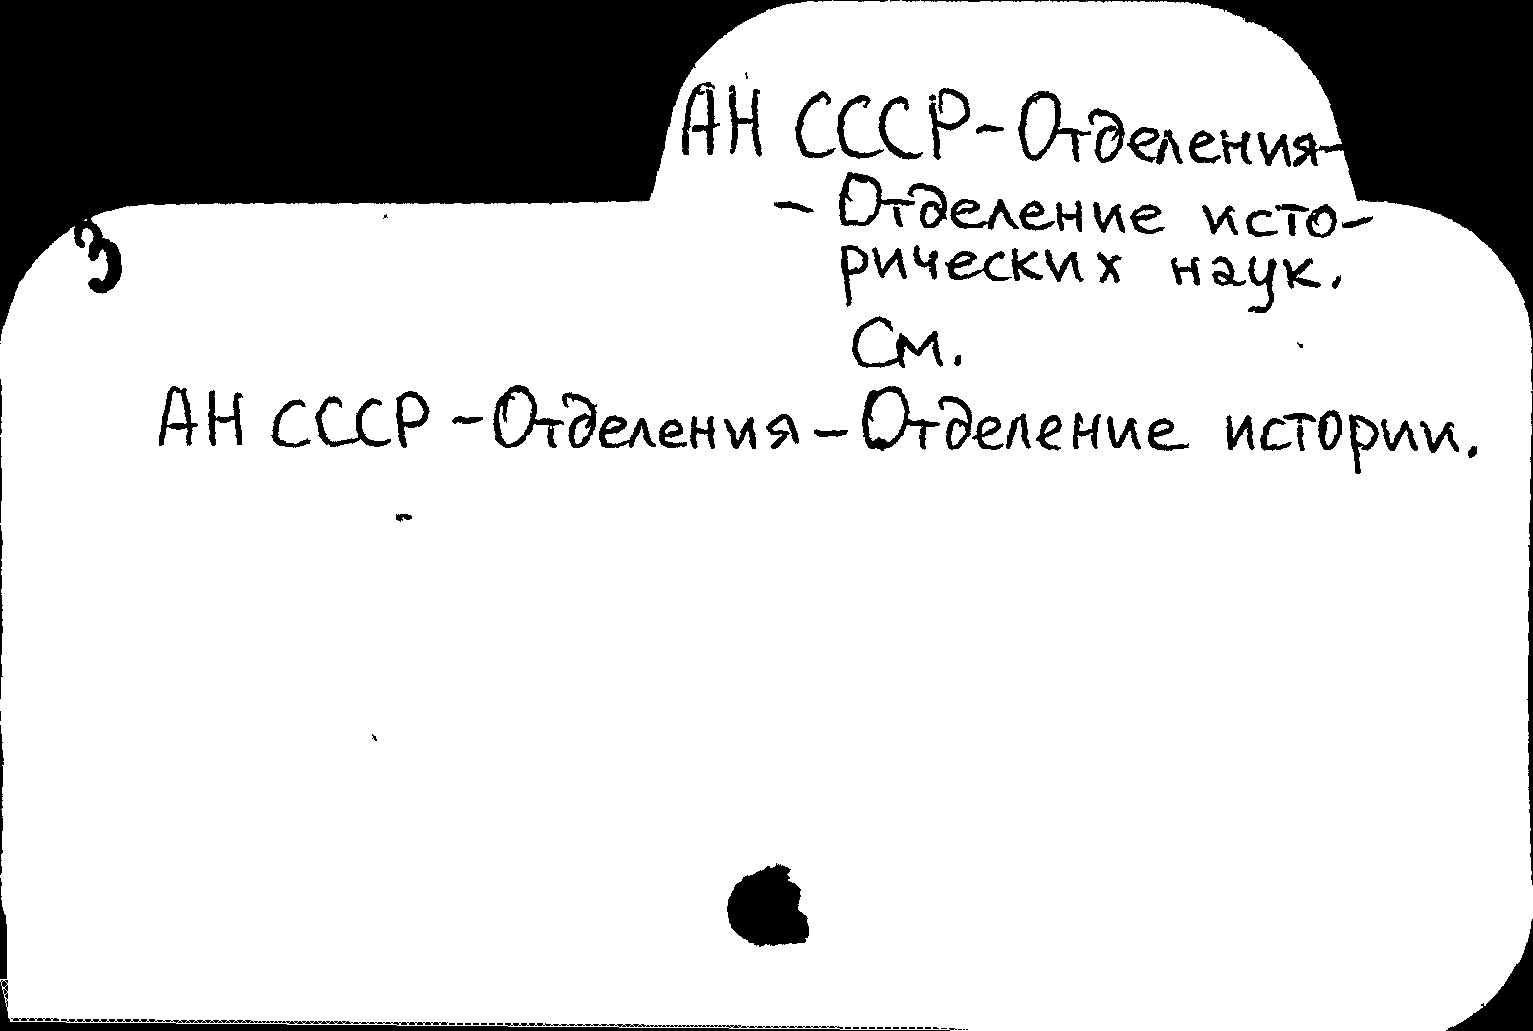 АН СССР-Отделения-
- Отделение исто-
рических наук.
3
См.
АН СССР - Отделения - Отделение истории.